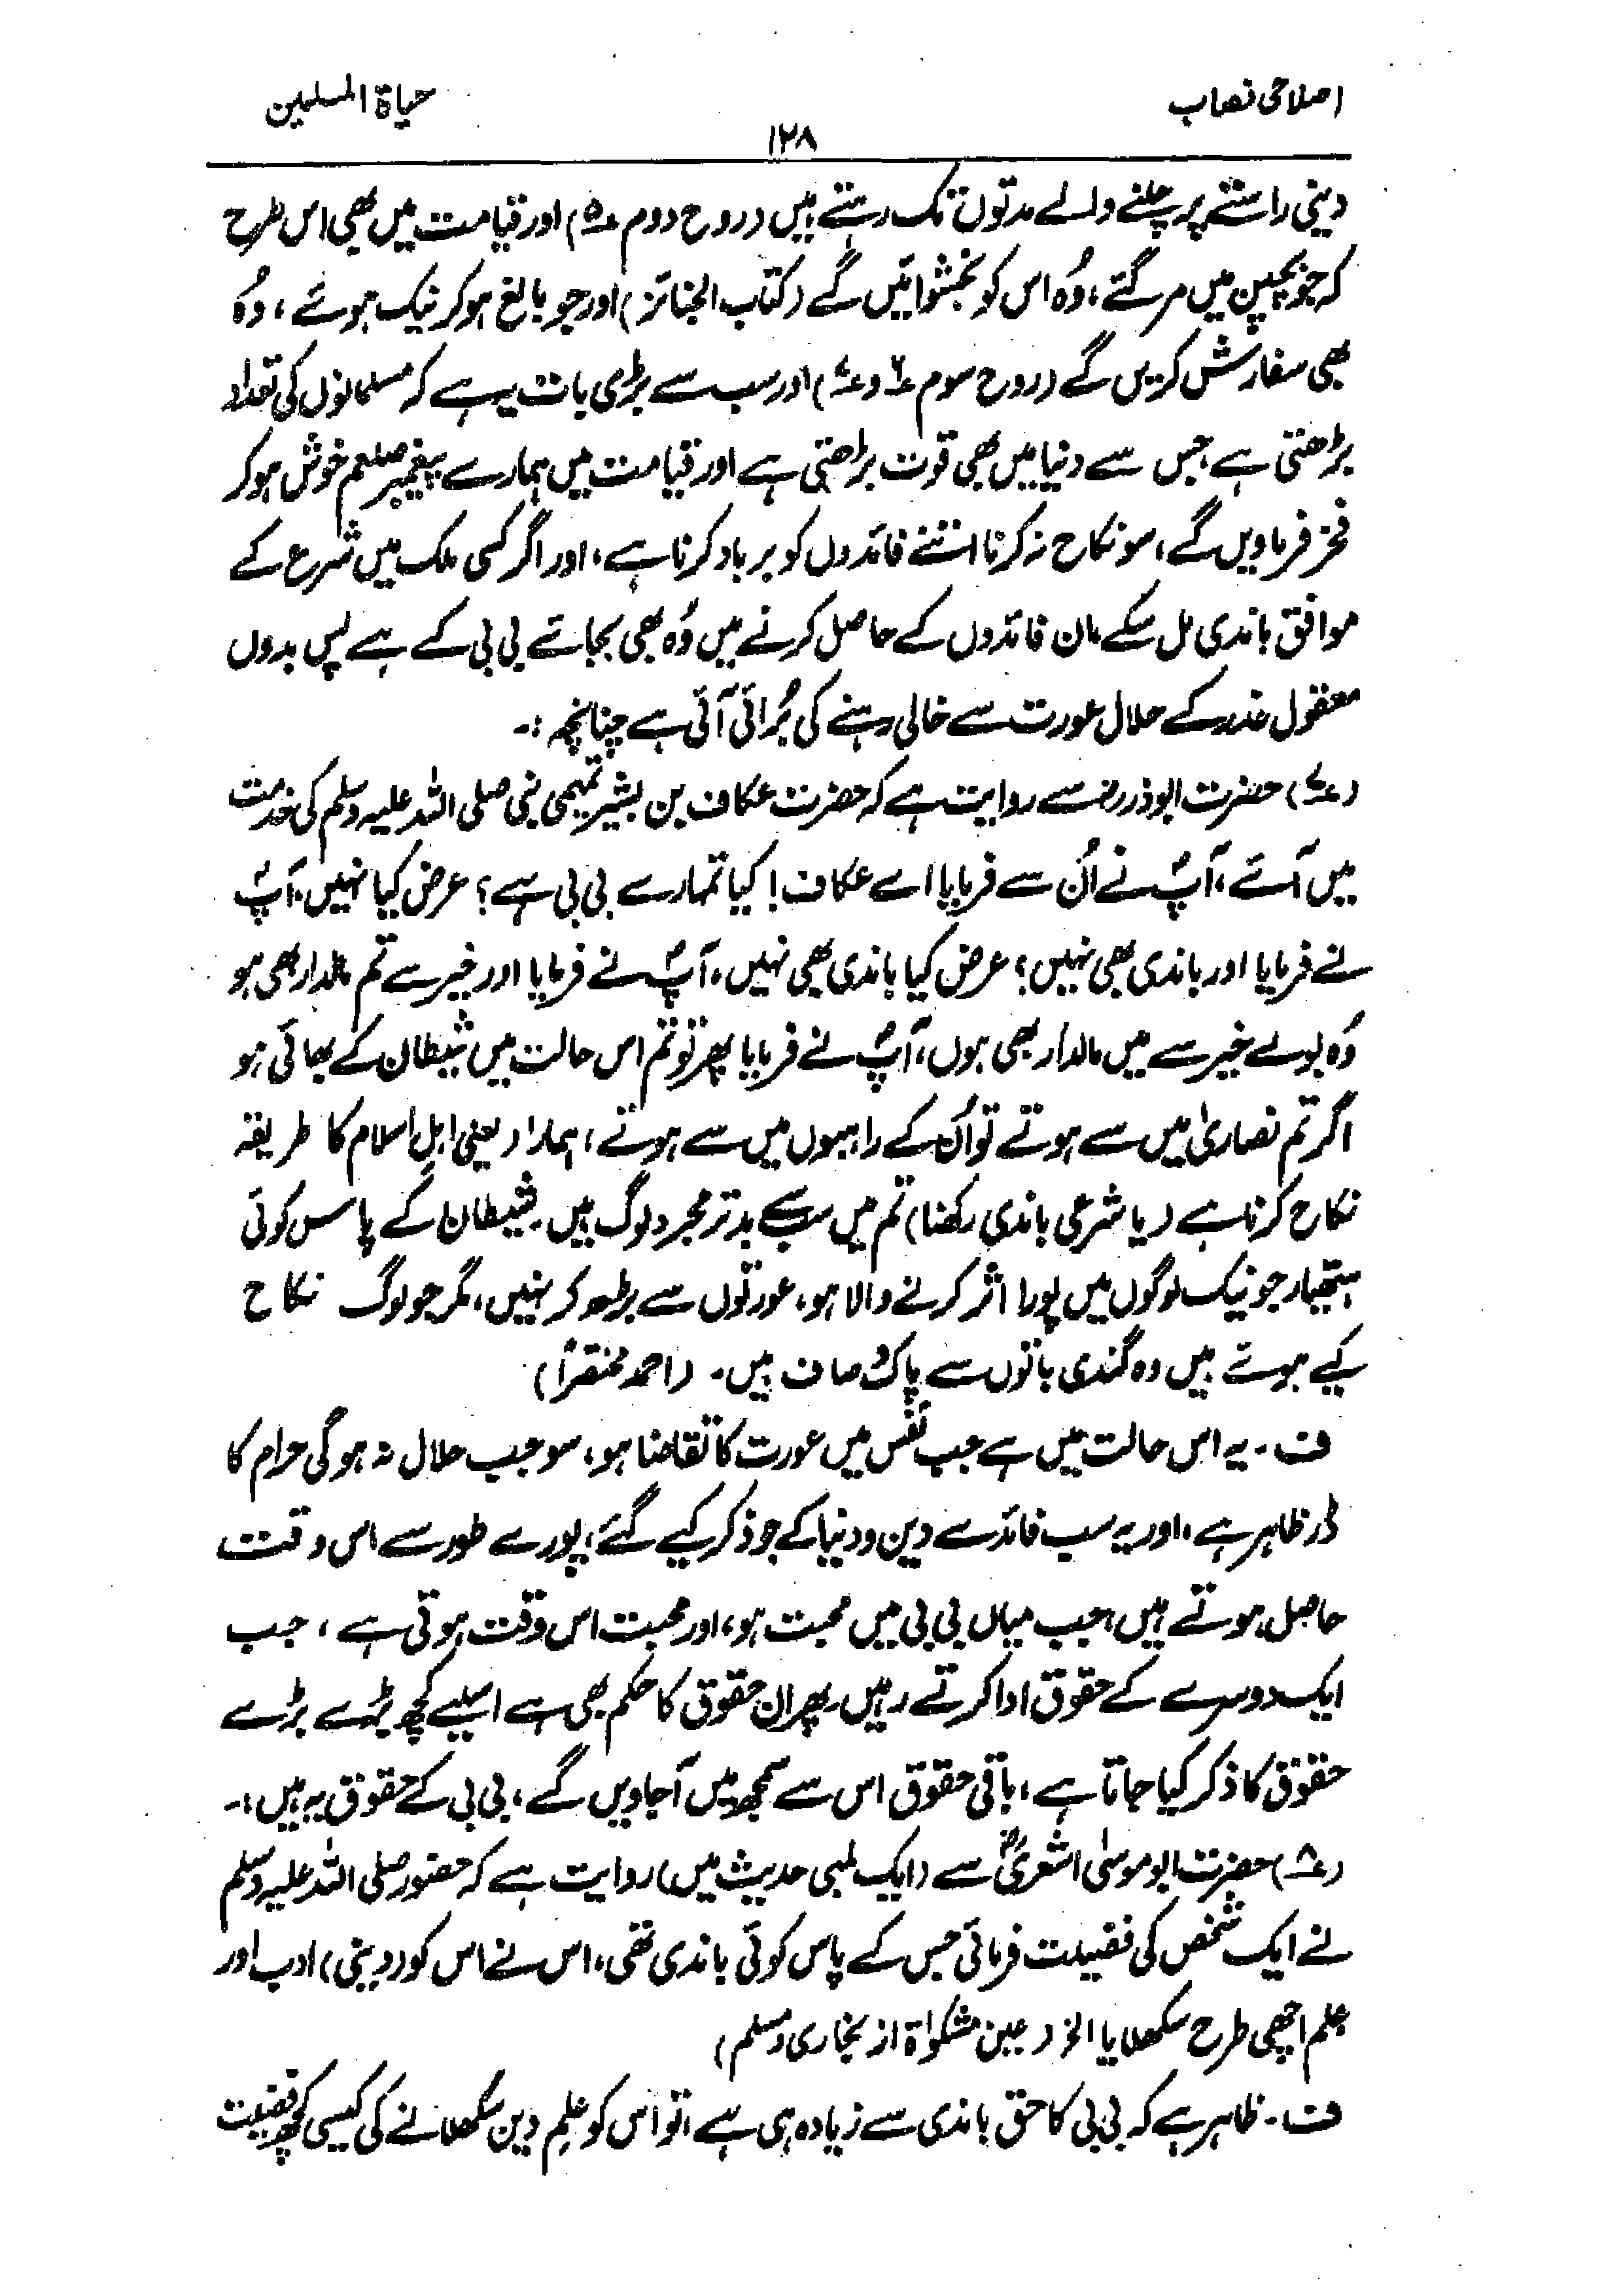 اصلاحی نصاب
حیاۃ المسلمین
۱۲۸
دینی راستے پر چلنے والے مدتوں تک رہتے ہیں (روح دوم ع۵) اور قیامت میں بھی اس طرح
کہ جو بچپن میں مر گئے، وُہ اس کو بخشوائیں گے (کتاب الجنائز) اور جو بالغ ہو کر نیک ہوئے، وُہ
بھی سفارش کریں گے (روح سوم ع۶ و ع۷) اور سب سے بڑی بات یہ ہے کہ مسلمانوں کی تعداد
بڑھتی ہے، جس سے دنیا میں بھی قوت بڑھتی ہے اور قیامت میں ہمارے پیغمبر صلعم خوش ہو کر
فخر فرماویں گے، سو نکاح نہ کرنا اتنے فائدوں کو برباد کرنا ہے، اور اگر کسی ملک میں شرع کے
موافق باندی مل سکے، ان فائدوں کے حاصل کرنے میں وُہ بھی بجائے بی بی کے ہے پس بدوں
معقول عذر کے حلال عورت سے خالی رہنے کی بُرائی آئی ہے چنانچہ :۔
(ع۷) حضرت ابوذر رضؓ سے روایت ہے کہ حضرت عکاف بن بشیر تمیمی نبی صلی اللہ علیہ وسلم کی خدمت
میں آئے، آپؐ نے اُن سے فرمایا اے عکاف! کیا تمہارے بی بی ہے؟ عرض کیا نہیں، آپؐ
نے فرمایا اور باندی بھی نہیں؟ عرض کیا باندی بھی نہیں، آپؐ نے فرمایا اور خیر سے تم مالدار بھی ہو
وُہ بولے خیر سے میں مالدار بھی ہوں، آپؐ نے فرمایا پھر تو تم اس حالت میں شیطان کے بھائی ہو
اگر تم نصاریٰ میں سے ہوتے تو اُن کے راہبوں میں سے ہوتے، ہمارا (یعنی اہلِ اسلام کا) طریقہ
نکاح کرنا ہے (یا شرعی باندی رکھنا) تم میں سب سے بدتر مجرد لوگ ہیں۔ شیطان کے پاس کوئی
ہتھیار جو نیک لوگوں میں پورا اثر کرنے والا ہو، عورتوں سے بڑھ کر نہیں، مگر جو لوگ نکاح
کیے ہوئے ہیں وہ گندی باتوں سے پاک و صاف ہیں۔ (احمد مختصراً)
ف۔ یہ اس حالت میں ہے جب نفس میں عورت کا تقاضا ہو، سو جب حلال نہ ہو گی حرام کا
ڈر ظاہر ہے، اور یہ سب فائدے دین و دنیا کے جو ذکر کیے گئے، پورے طور سے اس وقت
حاصل ہوتے ہیں، جب میاں بی بی میں محبت ہو، اور محبت اس وقت ہوتی ہے، جب
ایک دوسرے کے حقوق ادا کرتے رہیں، پھر ان حقوق کا حکم بھی ہے اسلیے کچھ بڑے بڑے
حقوق کا ذکر کیا جاتا ہے، باقی حقوق اس سے سمجھ میں آجاویں گے، بی بی کے حقوق یہ ہیں:۔
(ع۸) حضرت ابو موسٰی اشعریؓ سے (ایک لمبی حدیث میں) روایت ہے کہ حضور صلی اللہ علیہ وسلم
نے ایک شخص کی فضیلت فرمائی جس کے پاس کوئی باندی تھی، اس نے اس کو (دینی) ادب اور
علم اچھی طرح سکھلایا الخ (عین مشکوٰۃ از بخاری و مسلم)
ف۔ ظاہر ہے کہ بی بی کا حق باندی سے زیادہ ہی ہے، تو اس کو علمِ دین سکھلانے کی کیسی کچھ فضیلت